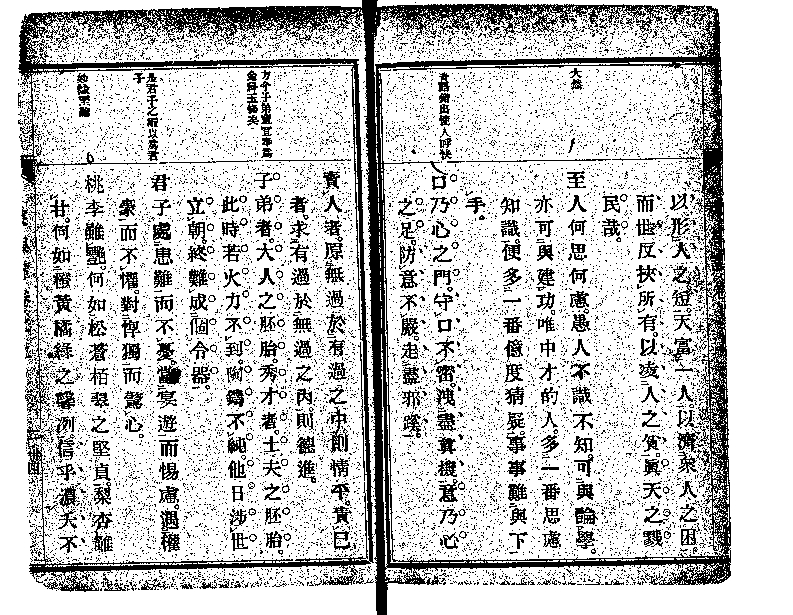 大然
以形人之短。天富一人以濟衆人之困。
而世反挾所有。以凌人之貧。眞天之戮
民哉。
至人何思何慮。愚人不識不知。可與論學。
亦可與建功。唯中才的人。多一番思慮
知識。便多一番億度猜疑。事事難與下
手。
口乃心之門。守口不密。洩盡眞機。意乃心
之足。防意不嚴。走盡邪蹊。
責人者。原無過於有過之中。則情平。責己
者。求有過於無過之內。則德進。
子弟者。大人之胚胎。秀才者。士夫之胚胎。
此時若火力不到。陶鑄不純。他日涉世
立朝。終難成個令器。
君子處患難而不憂。當宴遊而惕慮。遇權
豪而不懼。對惸獨而驚心。
桃李雖艷。何如松蒼栢翠之堅貞。梨杏雖
甘。何如橙黃橘綠之馨冽。信乎濃夭不